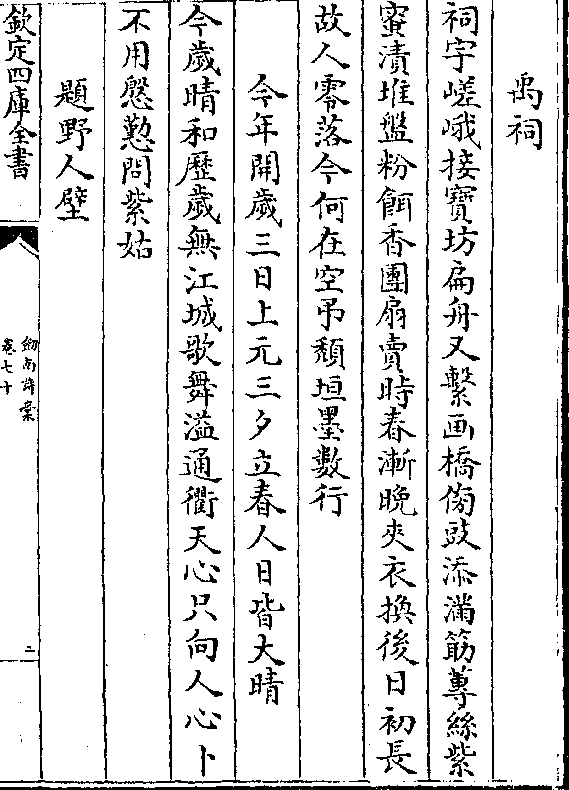 禹祠
祠宇嵯峨接寳坊扁舟又繫画橋傍豉添滿筯蓴絲紫
蜜漬堆盤粉餌香團扇賣時春漸晚夾衣換後日初長
故人零落今何在空弔頽垣墨數行
今年開歲三日上元三夕立春人日皆大晴
今歲晴和歷歲無江城歌舞溢通衢天心只向人心卜
不用慇懃問紫姑
題野人壁
欽定四庫全書
劒南詩稾
卷七十
二